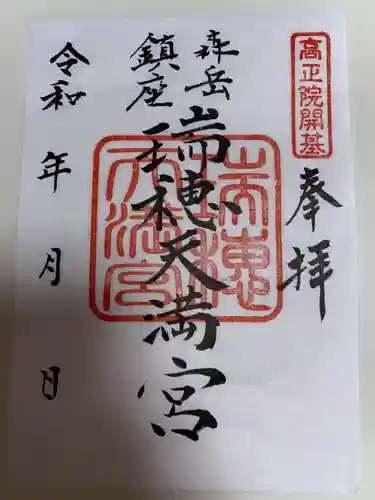 高正院開基
奉拝
森岳
鎮座
瑞穂天満宮
令和 年 月 日